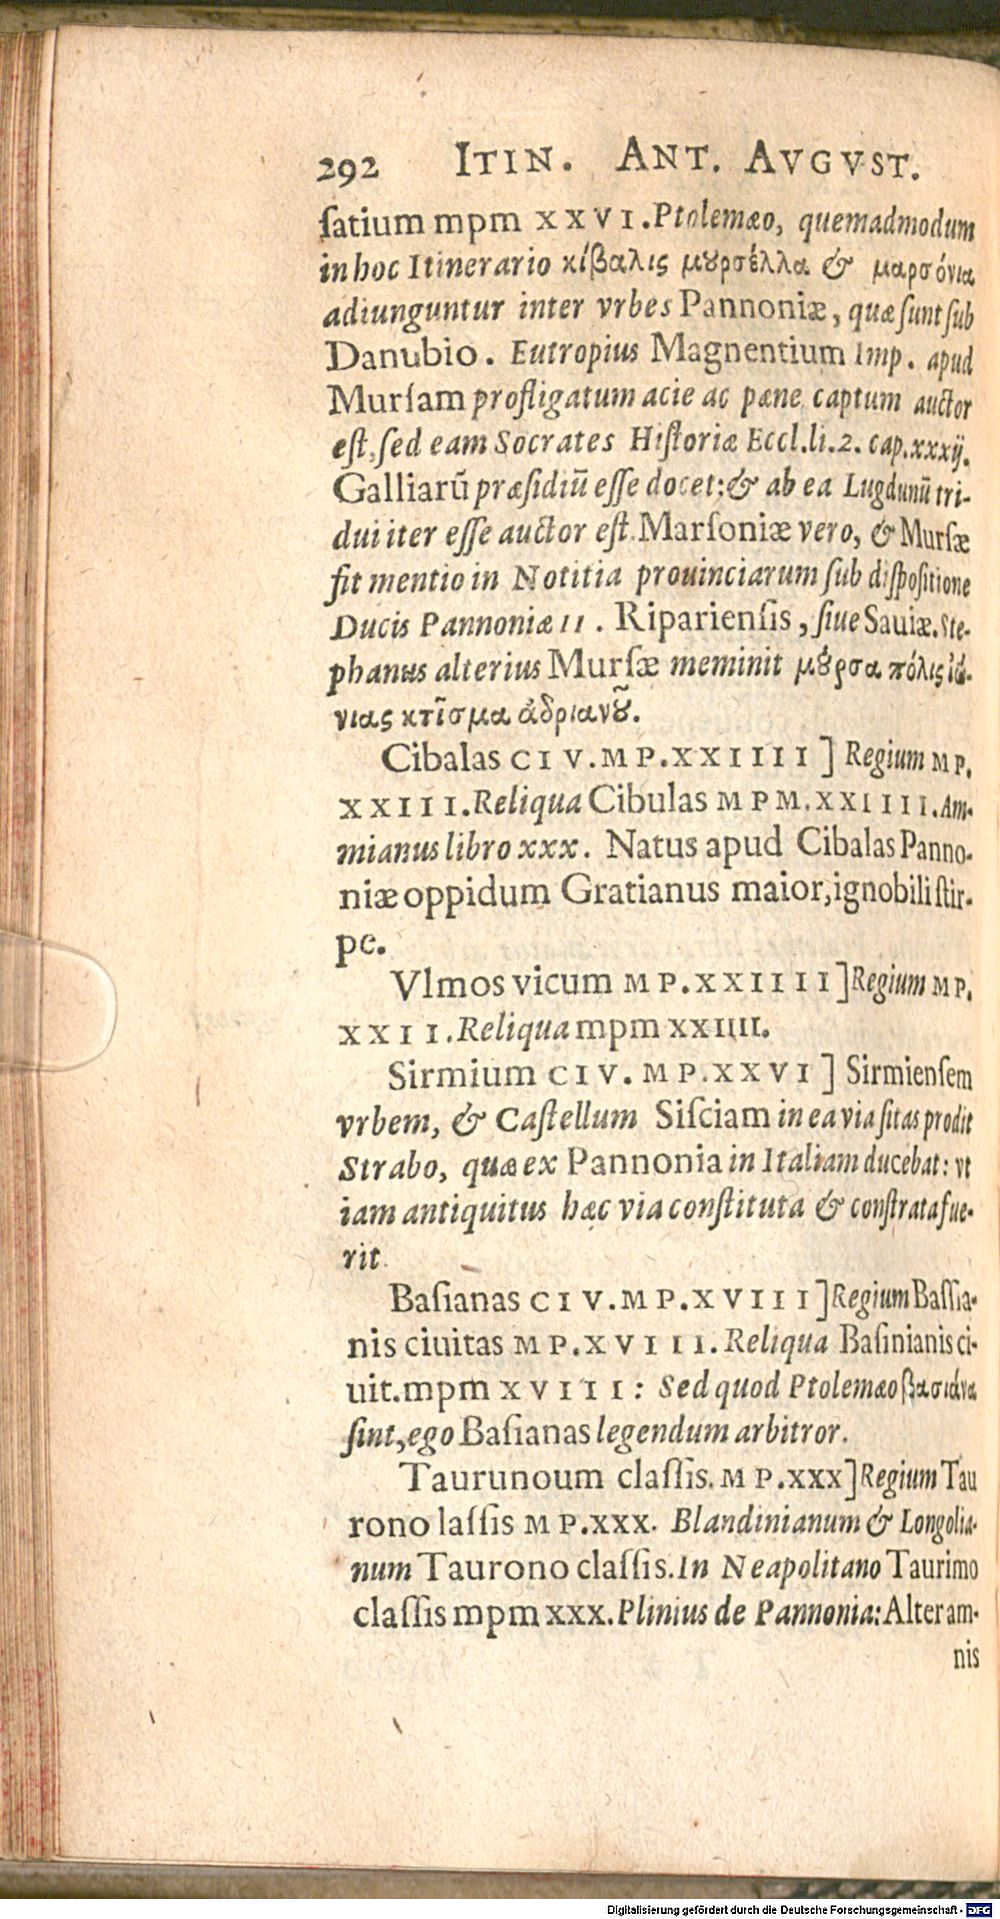 292 ITIN. ANT. AVGVST.
ſatium mpm XXVI. Ptolemæo, quemadmodum
in hoc Itinerario κίβαλις μȣρσέλλα & μαρσόνια
adiunguntur inter vrbes Pannoniæ, quæ ſunt ſub
Danubio. Eutropius Magnentium Imp. apud
Murſam profligatum acie ac pæne captum auctor
eſt, ſed eam Socrates Hiſtoriæ Eccl. li. 2. cap. xxxij.
Galliarū præſidiū eſſe docet: & ab ea Lugdunū tri-
dui iter eſſe auctor eſt. Marſoniæ vero, & Murſæ
fit mentio in Notitia prouinciarum ſub diſpoſitione
Ducis Pannoniæ II. Riparienſis, ſiue Sauiæ. Ste-
phanus alterius Murſæ meminit μȣ́ρσα πόλις ἰω-
νιας κτῖσμα ἀδριανȣ͂.
Cibalas CIV. MP. XXIIII] Regium MP.
XXIII. Reliqua Cibulas MPM. XXIIII. Am-
mianus libro xxx. Natus apud Cibalas Panno-
niæ oppidum Gratianus maior, ignobili ſtir-
pe.
Vlmos vicum MP. XXIIII] Regium MP.
XXII. Reliqua mpm XXIIII.
Sirmium CIV. MP. XXVI] Sirmienſem
vrbem, & Caſtellum Siſciam in ea via ſitas prodit
Strabo, quæ ex Pannonia in Italiam ducebat: vt
iam antiquitus hæc via conſtituta & conſtrata fue-
rit.
Baſianas CIV. MP. XVIII] Regium Baſſia-
nis ciuitas MP. XVIII. Reliqua Baſinianis ci-
uit. mpm XVIII: Sed quod Ptolemæo βασιάνα
ſint, ego Baſianas legendum arbitror.
Taurunoum claſſis. MP. XXX] Regium Tau
rono laſſis MP. XXX. Blandinianum & Longolia-
num Taurono claſſis. In Neapolitano Taurimo
claſſis mpm XXX. Plinius de Pannonia: Alter am-
nis
Digitalisierung gefördert durch die Deutsche Forschungsgemeinschaft - DFG